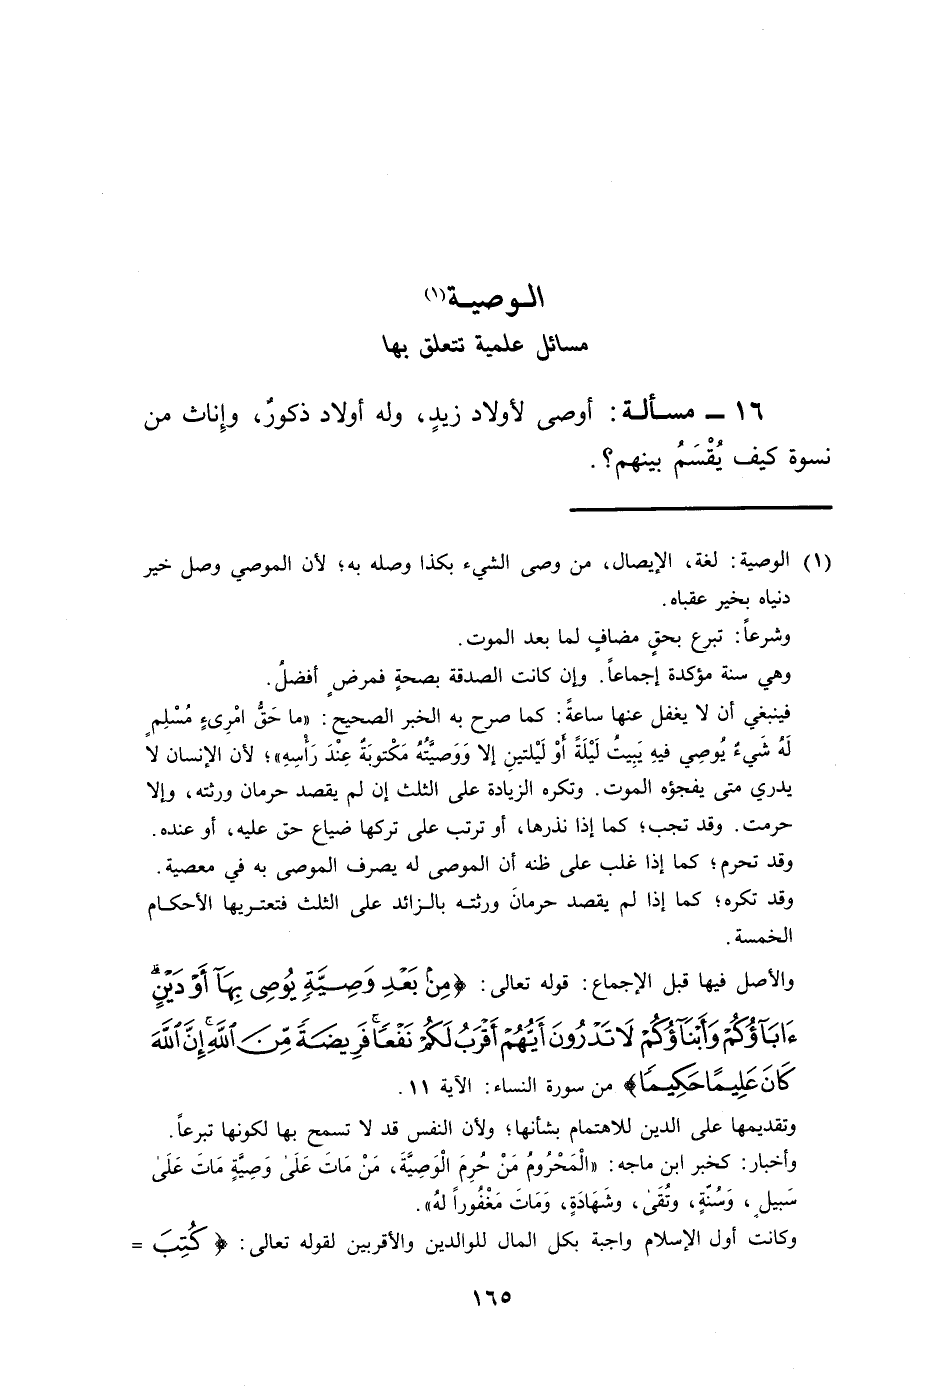 الوصية(١)
مسائل علمية تتعلق بها
١٦ ـ مسألة: أوصى لأولاد زيدٍ، وله أولاد ذكورٌ، وإناث من
نسوة كيف يُقْسَمُ بينهم؟.
(١) الوصية: لغة، الإيصال، من وصى الشيء بكذا وصله به؛ لأن الموصي وصل خير
دنياه بخير عقباه.
وشرعاً: تبرع بحقٍ مضافٍ لما بعد الموت.
وهي سنة مؤكدة إجماعاً. وإن كانت الصدقة بصحةٍ فمرضٍ أفضلُ.
فينبغي أن لا يغفل عنها ساعةً: كما صرح به الخبر الصحيح: «ما حَقُّ امْرِىءٍ مُسْلِمٍ
لَهُ شَيءٌ يُوصِي فيهِ يَبِيتُ لَيْلَةً أَوْ لَيْلتينِ إلا وَوَصِيَّتُهُ مَكْتوبَةٌ عِنْدَ رَأْسِهِ»؛ لأن الإنسان لا
يدري متى يفجؤه الموت. وتكره الزيادة على الثلث إن لم يقصد حرمان ورثته، وإلا
حرمت. وقد تجب؛ كما إذا نذرها، أو ترتب على تركها ضياع حق عليه، أو عنده.
وقد تحرم؛ كما إذا غلب على ظنه أن الموصى له يصرف الموصى به في معصية.
وقد تكره؛ كما إذا لم يقصد حرمانَ ورثته بالزائد على الثلث فتعتريها الأحكام
الخمسة.
والأصل فيها قبل الإجماع: قوله تعالى: ﴿مِنۢ بَعْدِ وَصِيَّةٍ يُوصِى بِهَآ أَوْ دَيْنٍۗ
ءَابَآؤُكُمْ وَأَبْنَآؤُكُمْ لَا تَدْرُونَ أَيُّهُمْ أَقْرَبُ لَكُمْ نَفْعًاۚ فَرِيضَةً مِّنَ ٱللَّهِۗ إِنَّ ٱللَّهَ
كَانَ عَلِيمًا حَكِيمًا﴾ من سورة النساء: الآية ١١.
وتقديمها على الدين للاهتمام بشأنها؛ ولأن النفس قد لا تسمح بها لكونها تبرعاً.
وأخبار: كخبر ابن ماجه: «الْمَحْرُومُ مَنْ حُرِمَ الْوَصِيَّةَ، مَنْ مَاتَ عَلَىٰ وَصِيَّةٍ مَاتَ عَلَىٰ
سَبيلٍ، وَسُنَّةٍ، وتُقَىٰ، وشَهَادَةٍ، وَمَاتَ مَغْفُوراً لهُ».
وكانت أول الإسلام واجبة بكل المال للوالدين والأقربين لقوله تعالى: ﴿كُتِبَ =
١٦٥